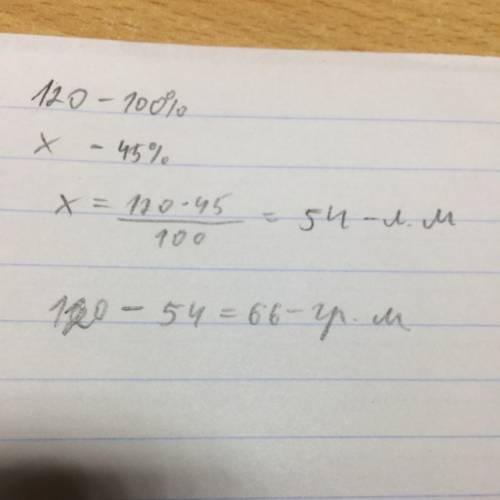 120 - 100%
x - 45%
x = 120·45/100 = 54 - л.м
120 - 54 = 66 - гр.м